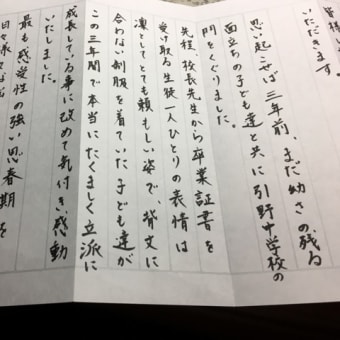 いただきます。
思い起こせば三年前、まだ幼さの残る
面立ちの子ども達と共に引野中学校の
門をくぐりました。
先程、校長先生から卒業証書を
受け取る生徒一人ひとりの表情は
凛としてとても頼もしい姿で、背丈に
合わない制服を着ていた子ども達が
この三年間で本当にたくましく立派に
成長している事に改めて気付き感動
いたしました。
最も感受性の強い思春期を